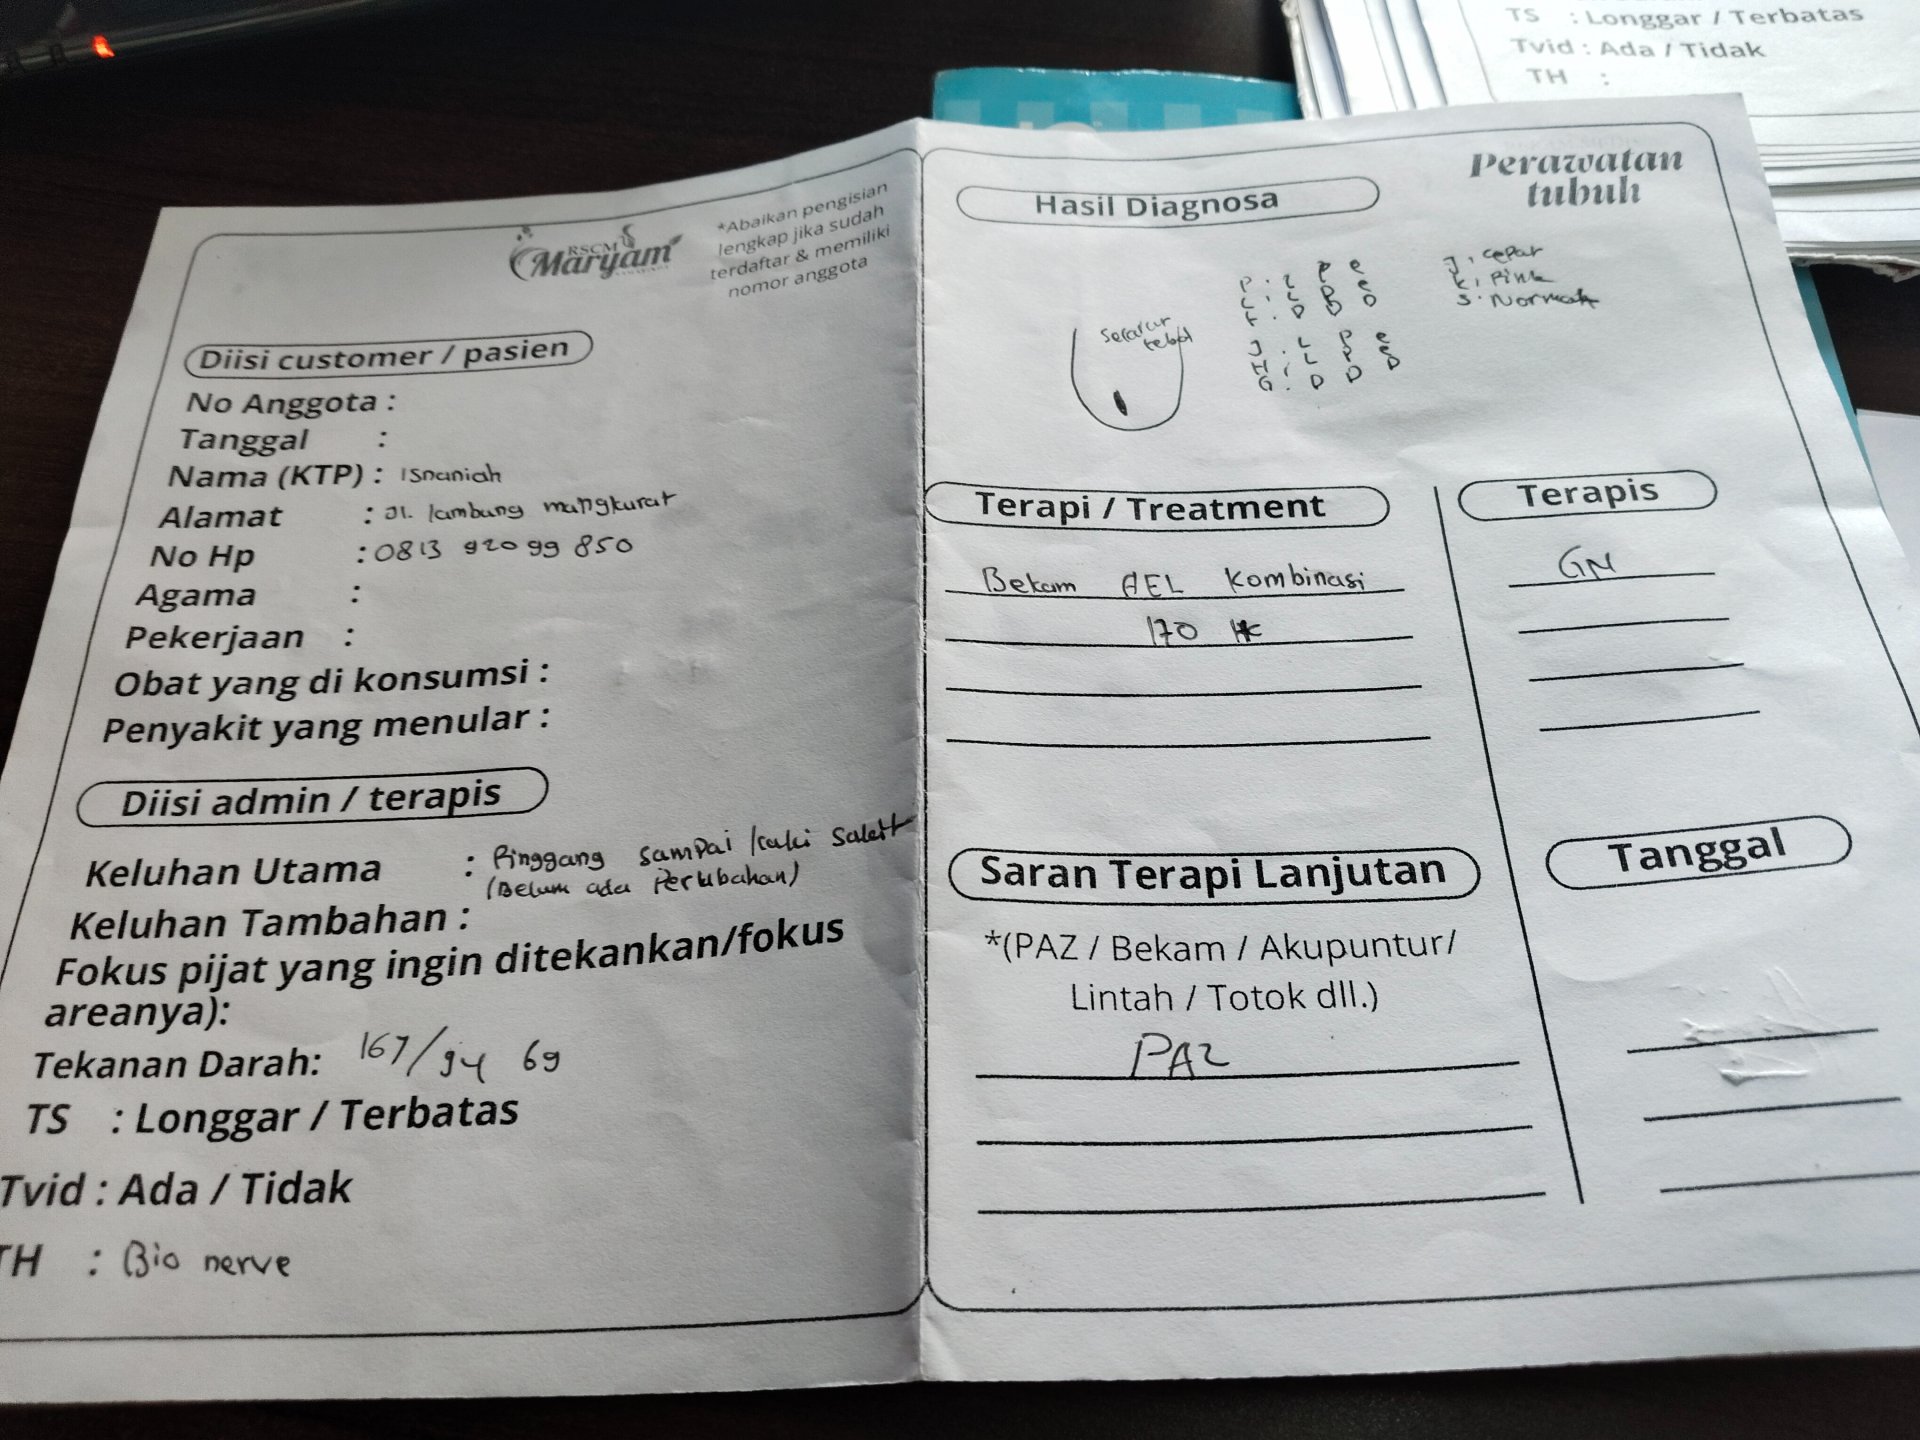 TS : Longgar / Terbatas
Tvid : Ada / Tidak
TH :
RSCM
Maryam
*Abaikan pengisian
lengkap jika sudah
terdaftar & memiliki
nomor anggota
Diisi customer / pasien
No Anggota :
Tanggal :
Nama (KTP) : Isnaniah
Alamat : Jl. lambung mangkurat
No Hp : 0813 920 99 850
Agama :
Pekerjaan :
Obat yang di konsumsi :
Penyakit yang menular :
Diisi admin / terapis
Keluhan Utama : Pinggang sampai kaki sakit
(Belum ada Perubahan)
Keluhan Tambahan :
Fokus pijat yang ingin ditekankan/fokus
areanya):
Tekanan Darah: 167/94 69
TS : Longgar / Terbatas
Tvid : Ada / Tidak
TH : Bio nerve
Perawatan
tubuh
Hasil Diagnosa
tebal
J : cepat
K : Pink
S : Normal
Terapi / Treatment
Bekam AEL Kombinasi
170 K
Terapis
GN
Saran Terapi Lanjutan
*(PAZ / Bekam / Akupuntur/
Lintah / Totok dll.)
PAZ
Tanggal